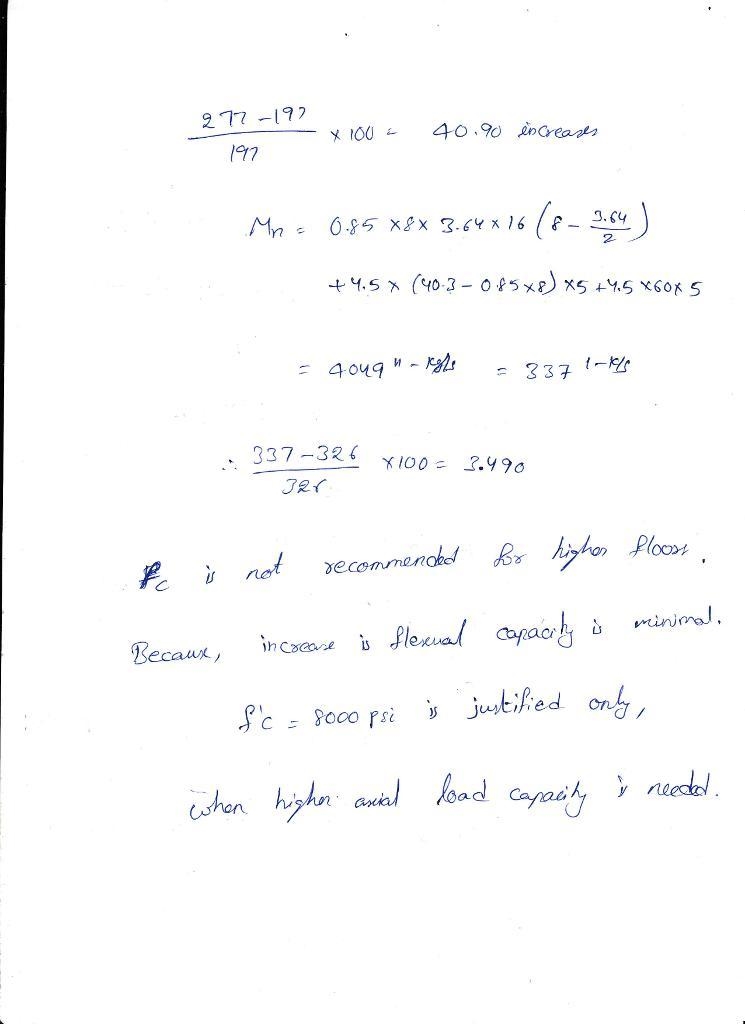 277 - 197 / 197 × 100 = 40.90 increases
Mn = 0.85 × 8 × 3.64 × 16 (8 - 3.64/2)
+ 4.5 × (40.3 - 0.85 × 8) × 5 + 4.5 × 60 × 5
= 4049 " - kips = 337 ' - k/s
∴ 337 - 326 / 326 × 100 = 3.490
f'c is not recommended for higher floors.
Because, increase is flexual capacity is minimal.
f'c = 8000 psi is justified only,
when higher axial load capacity is needed.